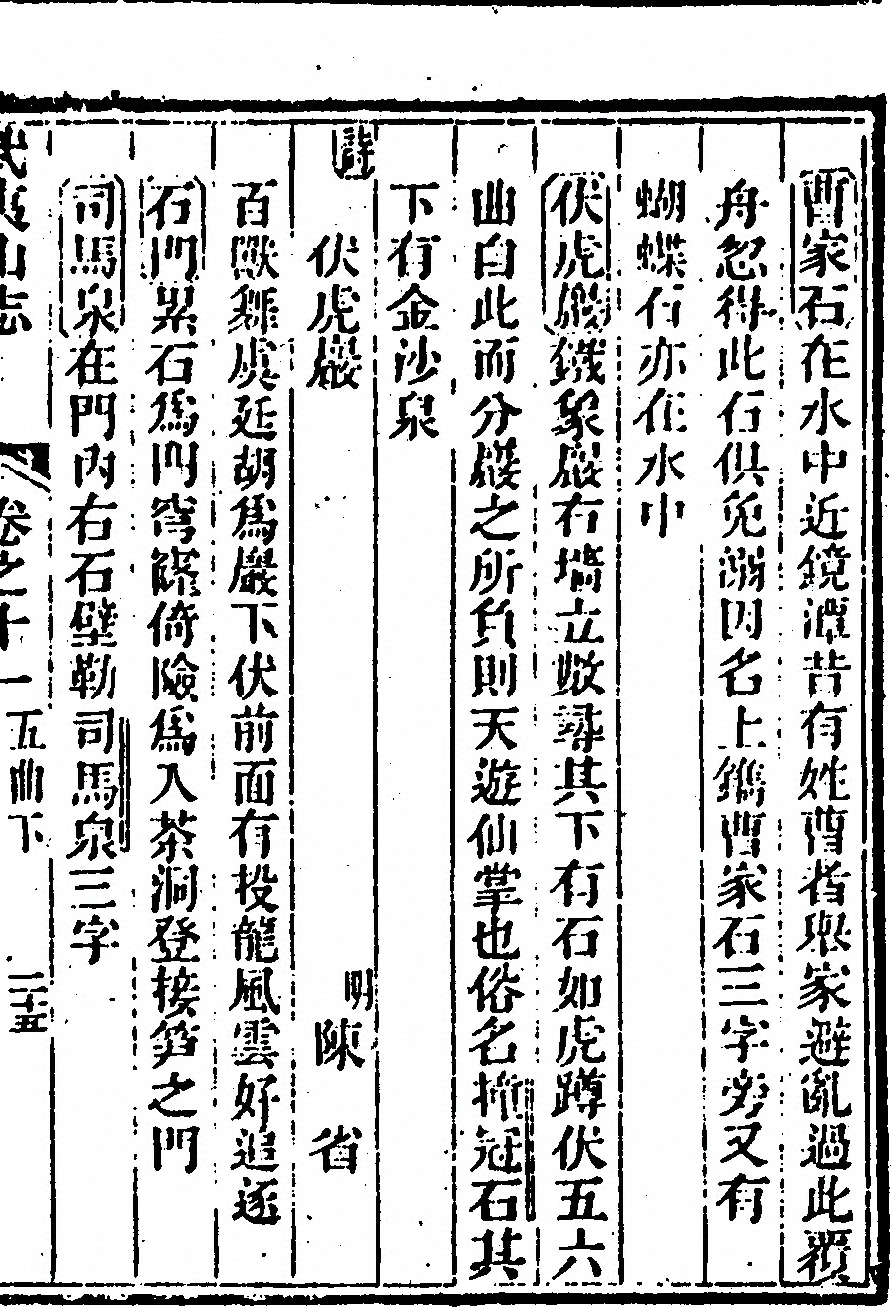 曹家石在水中近鏡潭昔有姓曹者舉家避亂過此覆
舟忽得此石俱免溺因名上鐫曹家石三字旁又有
蝴蝶石亦在水中
伏虎巖鐵象巖右墻立數尋其下有石如虎蹲伏五六
曲自此而分巖之所負則天遊仙掌也俗名撞冠石其
下有金沙泉
詩 伏虎巖 明 陳 省
百獸舞虞廷胡為巖下伏前面有投龍風雲好追逐
石門累石為門穹窿倚險為入茶洞登接笋之門
司馬泉在門內右石壁勒司馬泉三字
武夷山志 卷之十一 五曲下 二十五